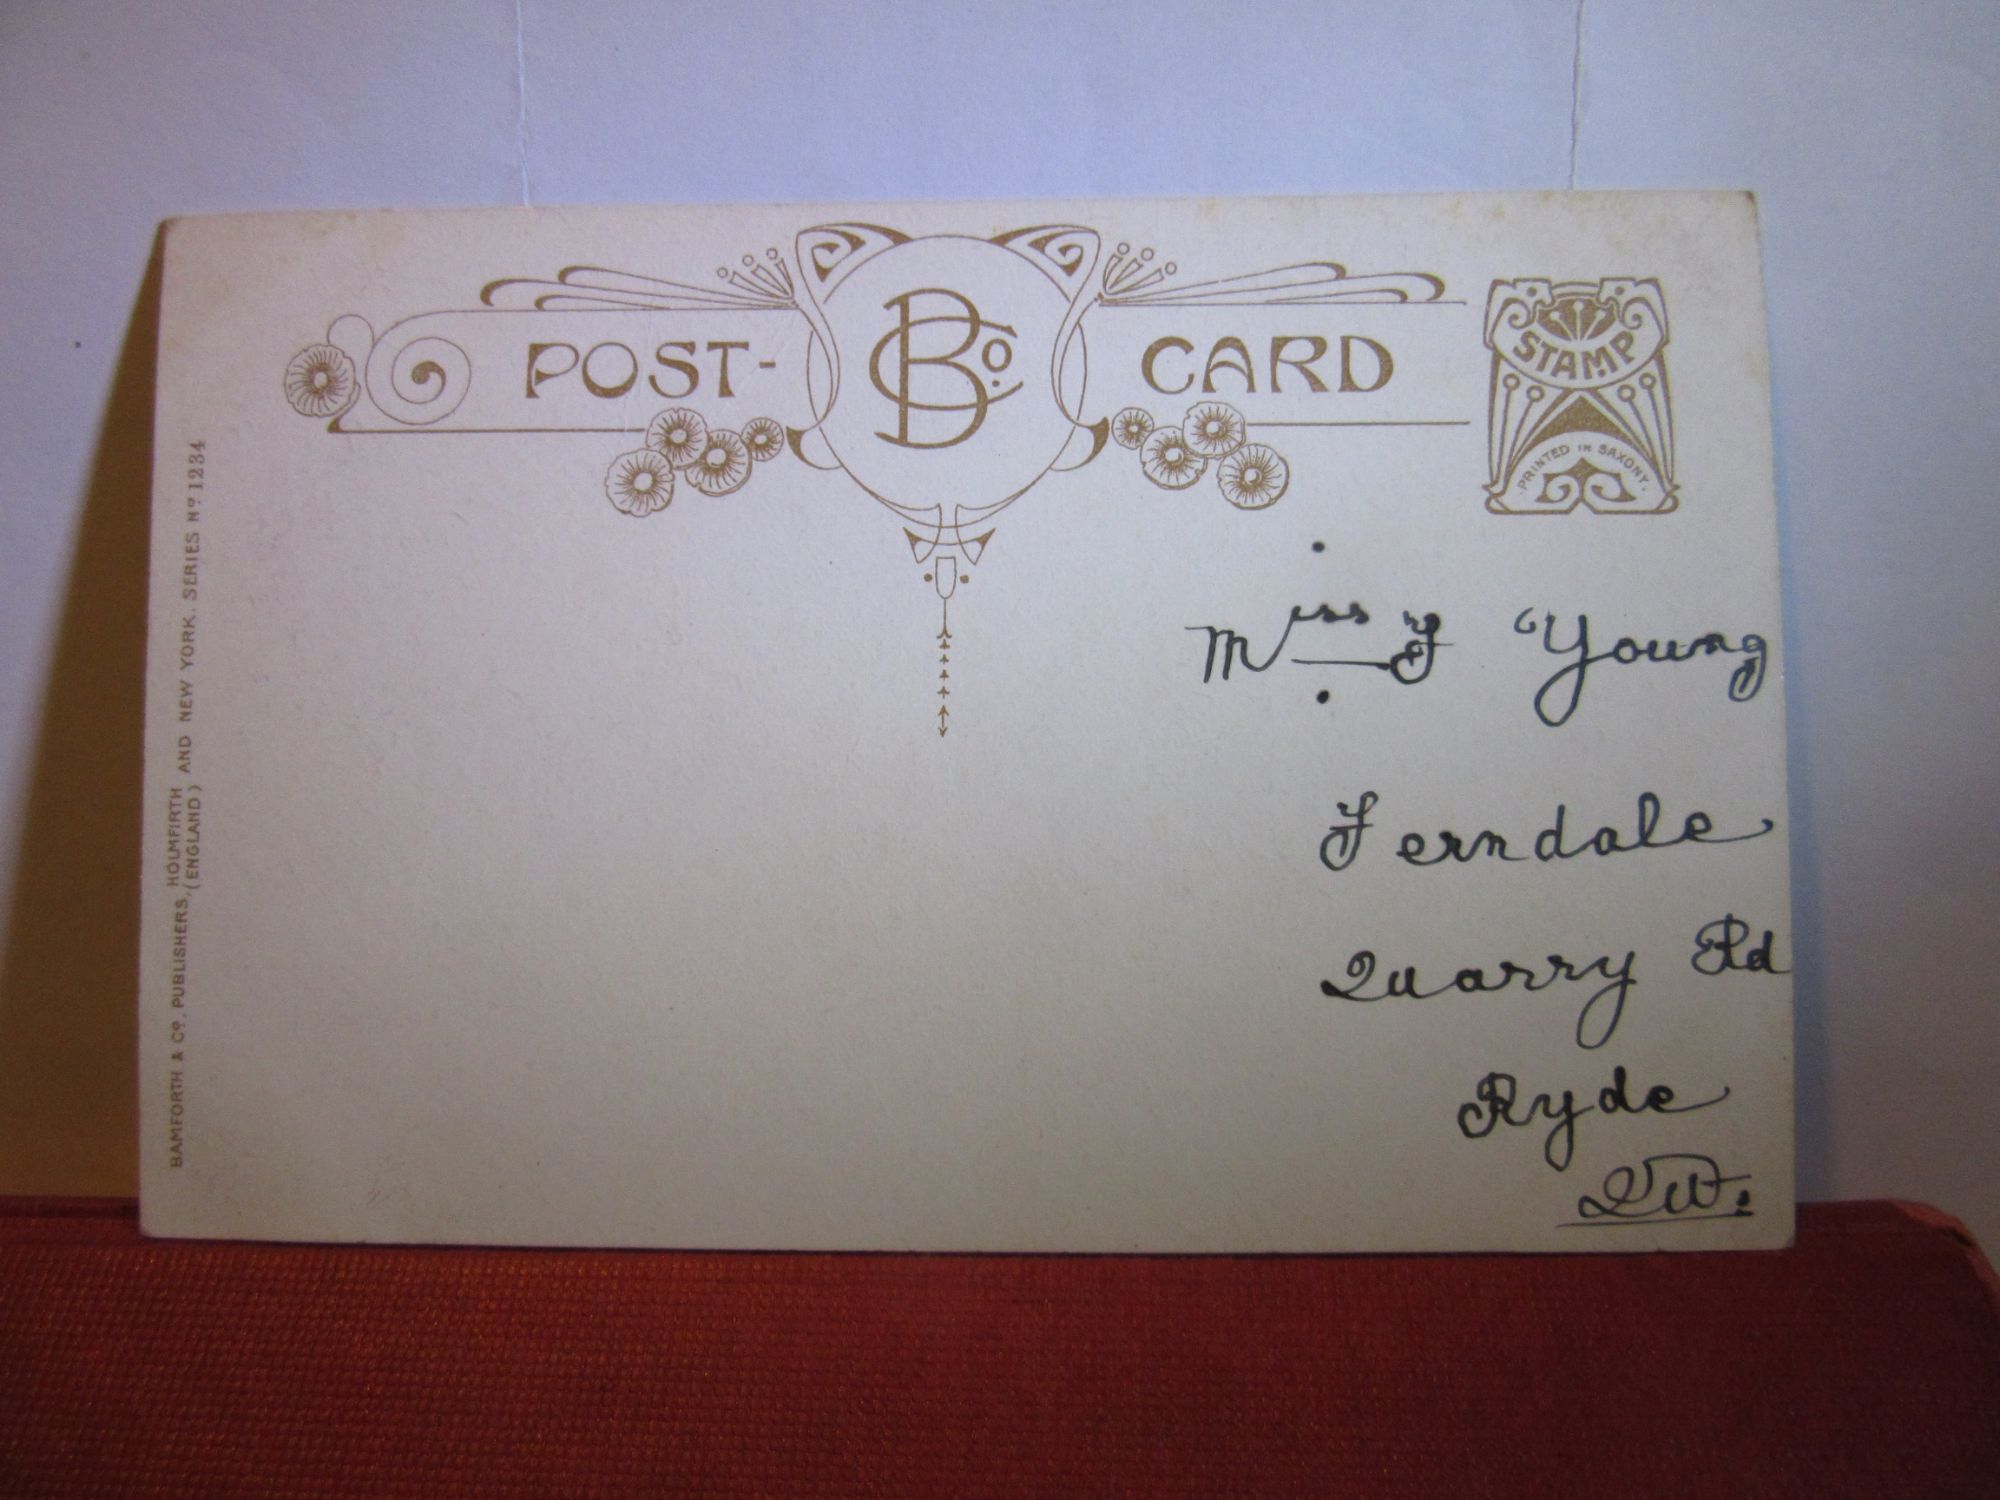 POST- BCo. CARD
STAMP
PRINTED IN SAXONY.
Miss F Young
Ferndale
Quarry Rd
Ryde
BAMFORTH & Co., PUBLISHERS, HOLMFIRTH (ENGLAND) AND NEW YORK. SERIES No 1234